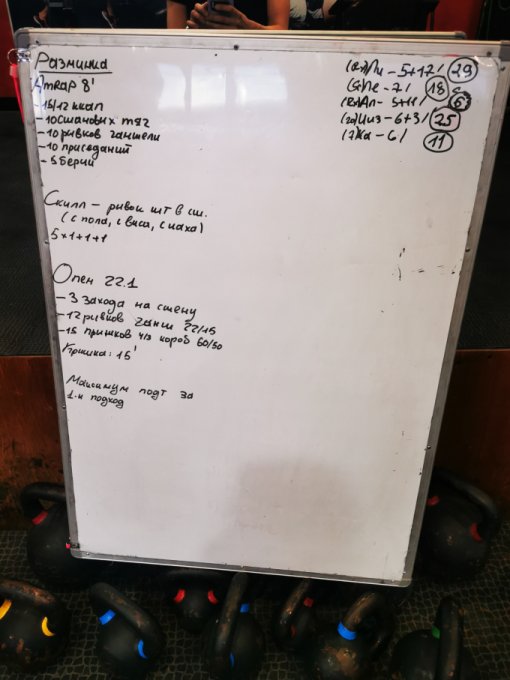 Разминка
Amrap 8'
- 15/12 ккал
- 10 становых тяг
- 10 рывков гантели
- 10 приседаний
- 5 берпи
Скилл - рывок шт в ст.
(с пола, с виса, с паха)
5×1+1+1
Опен 22.1
- 3 захода на стену
- 12 рывков гант 22/15
- 15 прыжков ч/з короб 60/50
Крышка: 15'
Максимум подт за
1-н подход
5+17/ 29
- 7/ 18
5+11/ 6
Лиз - 6+3/ 25
(7) Ка - 6/ 11